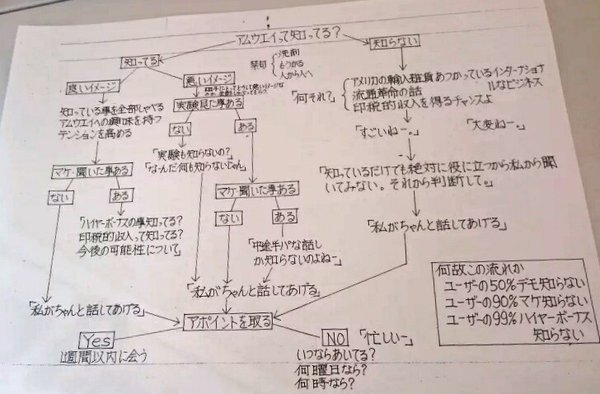 アムウエイって知ってる?
知ってる
知らない
禁句
洗剤
もうかる
人から人へ
良いイメージ
悪いイメージ
知っている事を全部しゃべる
アムウエイへの興味を持つ
テンションを高める
実験見た事ある
ない
ある
「実験も知らないの?
「な~んだ何も知らないじゃん」
「何それ?」
アメリカの輸入雑貨あつかっているインターナショナ
ルなビジネス
流通革命の話
印税的収入を得るチャンスよ
「すごいねー」
「大変ねー。」
「知っているだけでも絶対に役に立つから私から聞
いてみない。それから判断して。」
「私がちゃんと話してあげる」
マケ・聞いた事ある
ない
ある
「ハイヤーボーナスの事知ってる?
印税的収入って知ってる?
今後の可能性について」
マケ・聞いた事ある
ない
ある
「中途半パな話し
か知らないのよねー」
「私がちゃんと話してあげる」
「私がちゃんと話してあげる」
アポイントを取る
Yes
1週間以内に会う
NO
「忙しいー」
いつならあいてる?
何曜日なら?
何時なら?
何故この流れか
ユーザーの50%デモ知らない
ユーザーの90%マケ知らない
ユーザーの99%ハイヤーボーナス
知らない